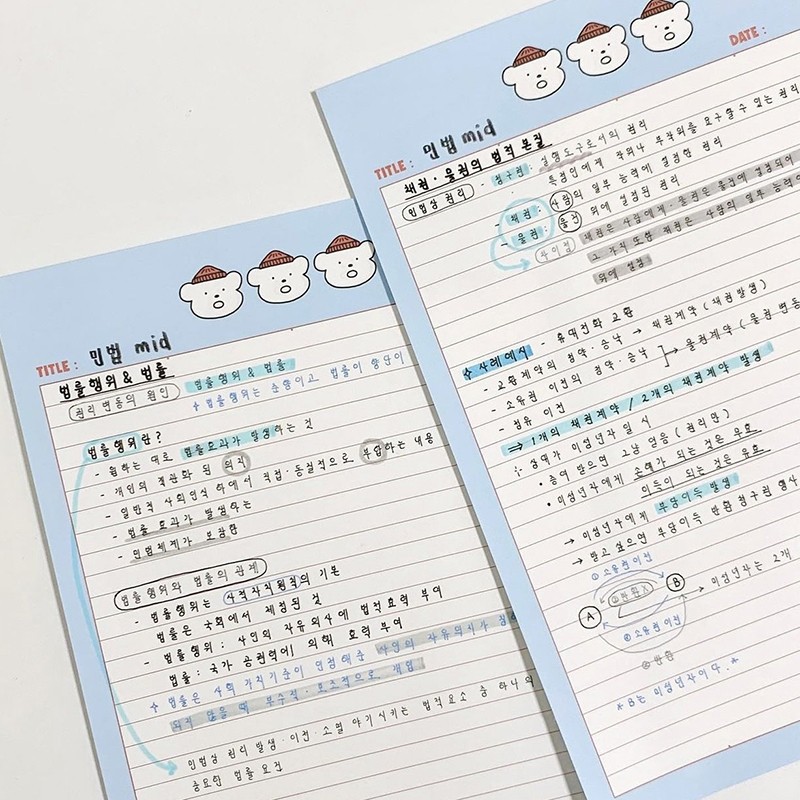 TITLE : 민법 mid
법률행위 & 법률
권리 변동의 원인 법률행위 & 법률
법률행위는 순향이고 법률이 양단이
법률행위란?
- 원하는 대로 법률효과가 발생하는 것
- 개인의 객관화 된 의지
- 일반적 사회인식 하에서 직접·동질적으로 부합하는 내용
- 법률 효과가 발생하는
- 민법체계가 보장함
법률행위와 법률의 관계
- 법률행위는 사적자치원칙의 기본
법률은 국회에서 제정된 것
- 법률행위 : 사인의 자유의사에 법적효력 부여
법률 : 국가 공권력이 의해 효력 부여
법률은 사회 가치기준이 인정해준 사인의 자유의사가
되지 않을 때 부수적·보조적으로 개입
민법상 권리 발생·이전·소멸 야기시키는 법적요소 중 하나의
중요한 법률 요건
DATE :
TITLE : 민법 mid
채권·물권의 법적 본질
민법상 권리 - 청구권 : 실행도구로서의 권리
특정인에게 작위나 부작위를 요구할 수 있는 권리
- 채권 : 사람의 일부 능력에 설정한 권리
- 물권 : 물건 위에 설정된 권리
차이점 채권은 사람에게·물권은 물건에 설정되어
그 가치 또한 채권은 사람의 일부 능력이
위에 설정
☆사례예시 - 휴대전화 교환
- 교환계약의 청약·승낙 → 채권계약 (채권발생)
- 소유권 이전의 청약·승낙 ] → 물권계약 (물권 변동
- 점유 이전
⇒ 1개의 채권계약 / 2개의 채권계약 발생
∴ 상대가 미성년자 일 시
• 증여 받으면 그냥 얻음 (권리만)
• 미성년자에게 손해가 되는 것은 무효
이득이 되는 것은 유효
→ 미성년자에게 부당이득 발생
→ 받고 싶으면 부당이득 반환 청구권 행사
① 소유권이전
A B
→ 미성년자는 2개
② 소유권이전
* B는 미성년자이다. *